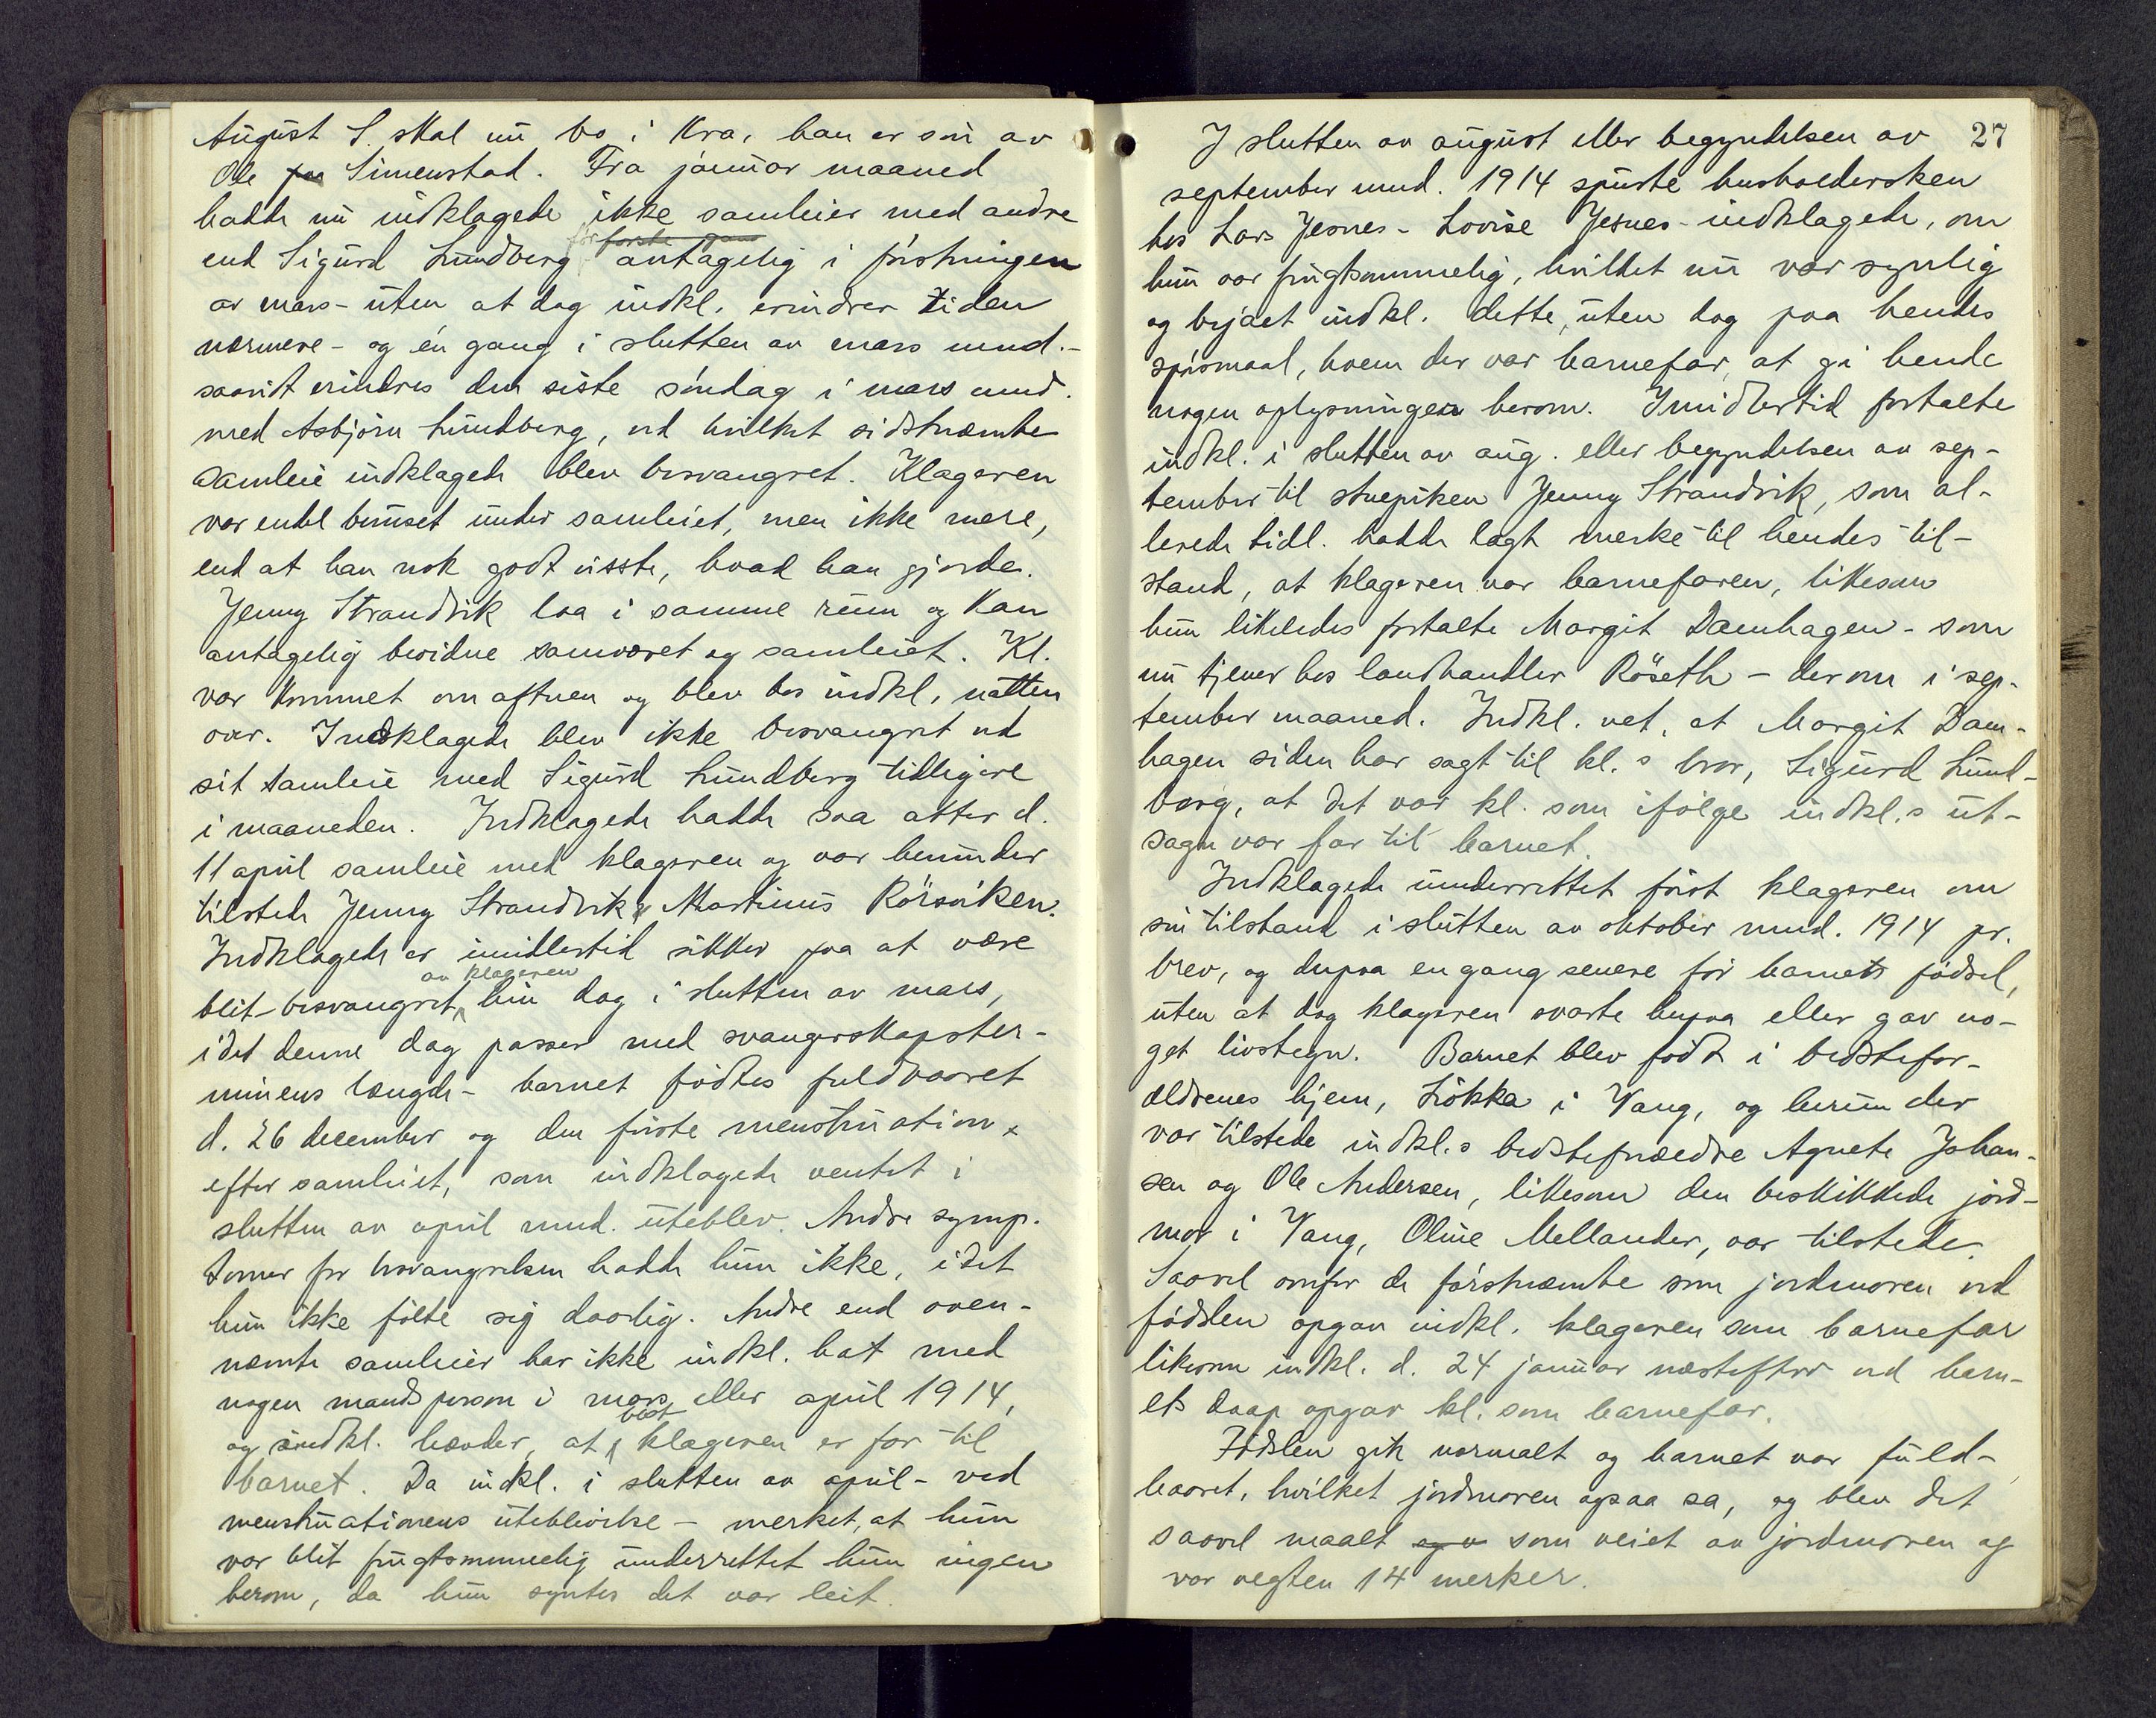 August S. skal nu bo i Kra, han er søn av
Ole paa Simenstad. Fra januar maaned
hadde nu indklagede ikke samleier med andre
for første gang
end Sigurd Lundberg antagelig i førstningen
av mars - uten at dog indkl. erindrer tiden
nærmere - og én gang i slutten av mars mnd. -
saavidt erindres den siste søndag i mars mnd.
med Asbjørn Lundberg, ved hvilket sidstnæmte
samleie indklagede blev besvangret. Klageren
var endel beruset under samleiet, men ikke mere,
end at han nok godt visste, hvad han gjorde.
Jenny Strandvik laa i samme rum og kan
antagelig bevidne samværet og samleiet. Kl.
var kommet om aftnen og blev hos indkl. natten
over. Indklagede blev ikke besvangret ved
sit samleie med Sigurd Lundberg tidligere
i maaneden. Indklagede hadde saa atter d.
11 april samleie med klageren og var herunder
tilstede Jenny Strandvik & Martinius Rörsviken.
Indklagede er imidlertid sikker paa at være
av klageren
blit besvangret hin dag i slutten av mars,
idet denne dag passer med svangerskapster-
minens længde - barnet fødtes fuldbaaret
d. 26 december og den første menstruation
efter samleiet, som indklagede ventet i
slutten av april mnd. uteblev. Andre symp-
tomer for besvangrelsen hadde hun ikke, idet
hun ikke følte sig daarlig. Andre end oven-
næmte samleier har ikke indkl. hat med
nogen mandsperson i mars eller april 1914,
og indkl. hævder, at klageren er far til
barnet. Da indkl. i slutten av april - ved
menstruationens uteblivelse - merket, at hun
var blit frugtsommelig underrettet hun ingen
herom, da hun syntes det var leit.
27
I slutten av august eller begyndelsen av
september mnd. 1914 spurte husholdersken
hos Lars Jesnes - Lovise Jesnes - indklagede, om
hun var frugtsommelig, hvilket nu var synlig
og bejaet indkl. dette, uten dog paa hendes
spørsmaal, hvem der var barnefar, at gi hende
nogen oplysninger herom. Imidlertid fortalte
indkl. i slutten av aug. eller begyndelsen av sep-
tember til stuepiken Jenny Strandvik, som al-
lerede tidl. hadde lagt merke til hendes til-
stand, at klageren var barnefaren, likesom
hun likeledes fortalte Margit Damhagen - som
nu tjener hos landhandler Röseth - derom i sep-
tember maaned. Indkl. vet, at Margit Dam-
hagen siden har sagt til kl.s bror, Sigurd Lund-
berg, at det var kl. som ifølge indkl.s ut-
sagn var far til barnet.
Indklagede underrettet først klageren om
sin tilstand i slutten av oktober mnd. 1914 pr.
brev, og derpaa en gang senere før barnets fødsel,
uten at dog klageren svarte herpaa eller gav no-
get livstegn. Barnet blev født i bedstefor-
ældrenes hjem, Løkka i Vang, og herunder
var tilstede indkl.s bedsteforældre Agnete Johan-
sen og Ole Andersen, likesom den beskikkede jord-
mor i Vang, Oline Mellander, var tilstede.
Saavel overfor de førstnæmte som jordmoren ved
fødslen opgav indkl. klageren som barnefar
likesom indkl. d. 24 januar næstefter ved barn-
ets daap opgav kl. som barnefar.
Fødslen gik normalt og barnet var fuld-
baaret, hvilket jordmoren ogsaa sa, og blev det
saavel maalt og v som veiet av jordmoren og
var vegten 14 merker.